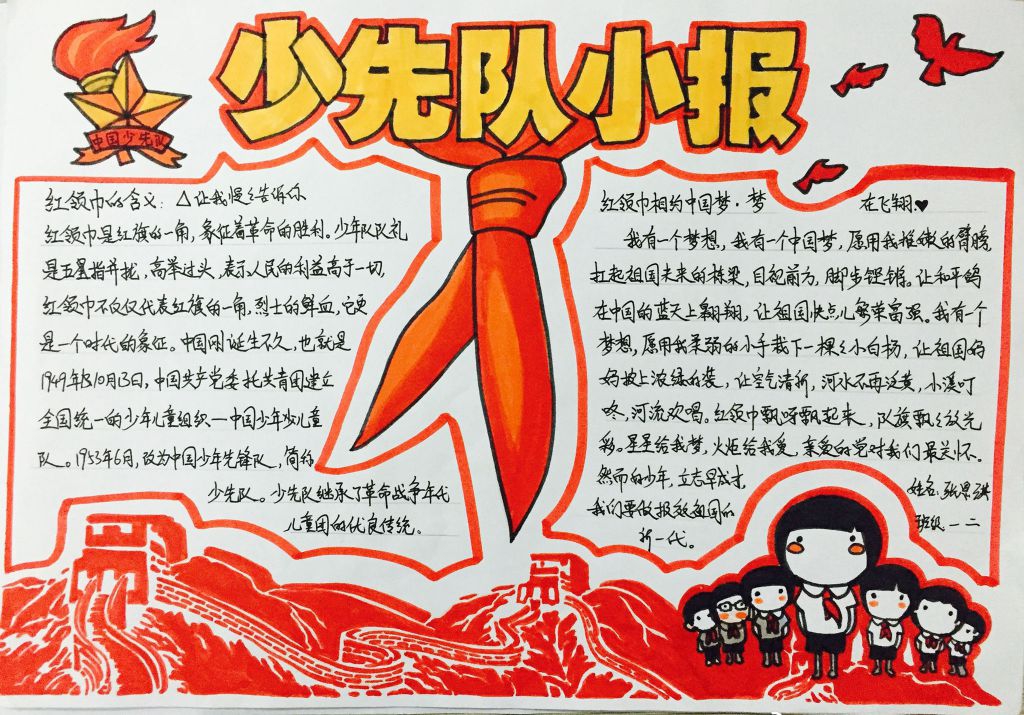 少先队小报
中国少先队
红领巾的含义：△让我慢慢告诉你
红领巾是红旗的一角，象征着革命的胜利。少年队队礼
是五星指并拢，高举过头，表示人民的利益高于一切，
红领巾不仅仅代表红旗的一角，烈士的鲜血，它更
是一个时代的象征。中国刚诞生不久，也就是
1949年10月13日，中国共产党委托共青团建立
全国统一的少年儿童组织一中国少年少儿童
队。1953年6月，改为中国少年先锋队，简称
少先队。少先队继承了革命战争年代
儿童团的优良传统。
红领巾相约中国梦·梦 在飞翔♥
我有一个梦想，我有一个中国梦，愿用我稚嫩的臂膀，
扛起祖国未来的栋梁，目视前方，脚步铿锵。让和平鸽
在中国的蓝天上翱翔，让祖国快点儿繁荣富强。我有一个
梦想，愿用我柔弱的小手栽下一棵棵小白杨，让祖国妈
妈披上浓绿的装，让空气清新，河水不再泛黄，小溪叮
咚，河流欢唱。红领巾飘呀飘起来，队旗飘飘放光
彩。星星给我梦，火炬给我爱，亲爱的党对我们最关怀。
然而的少年，立志早成才，
我们要做报效祖国的
新一代。
姓名：张
班级：一二